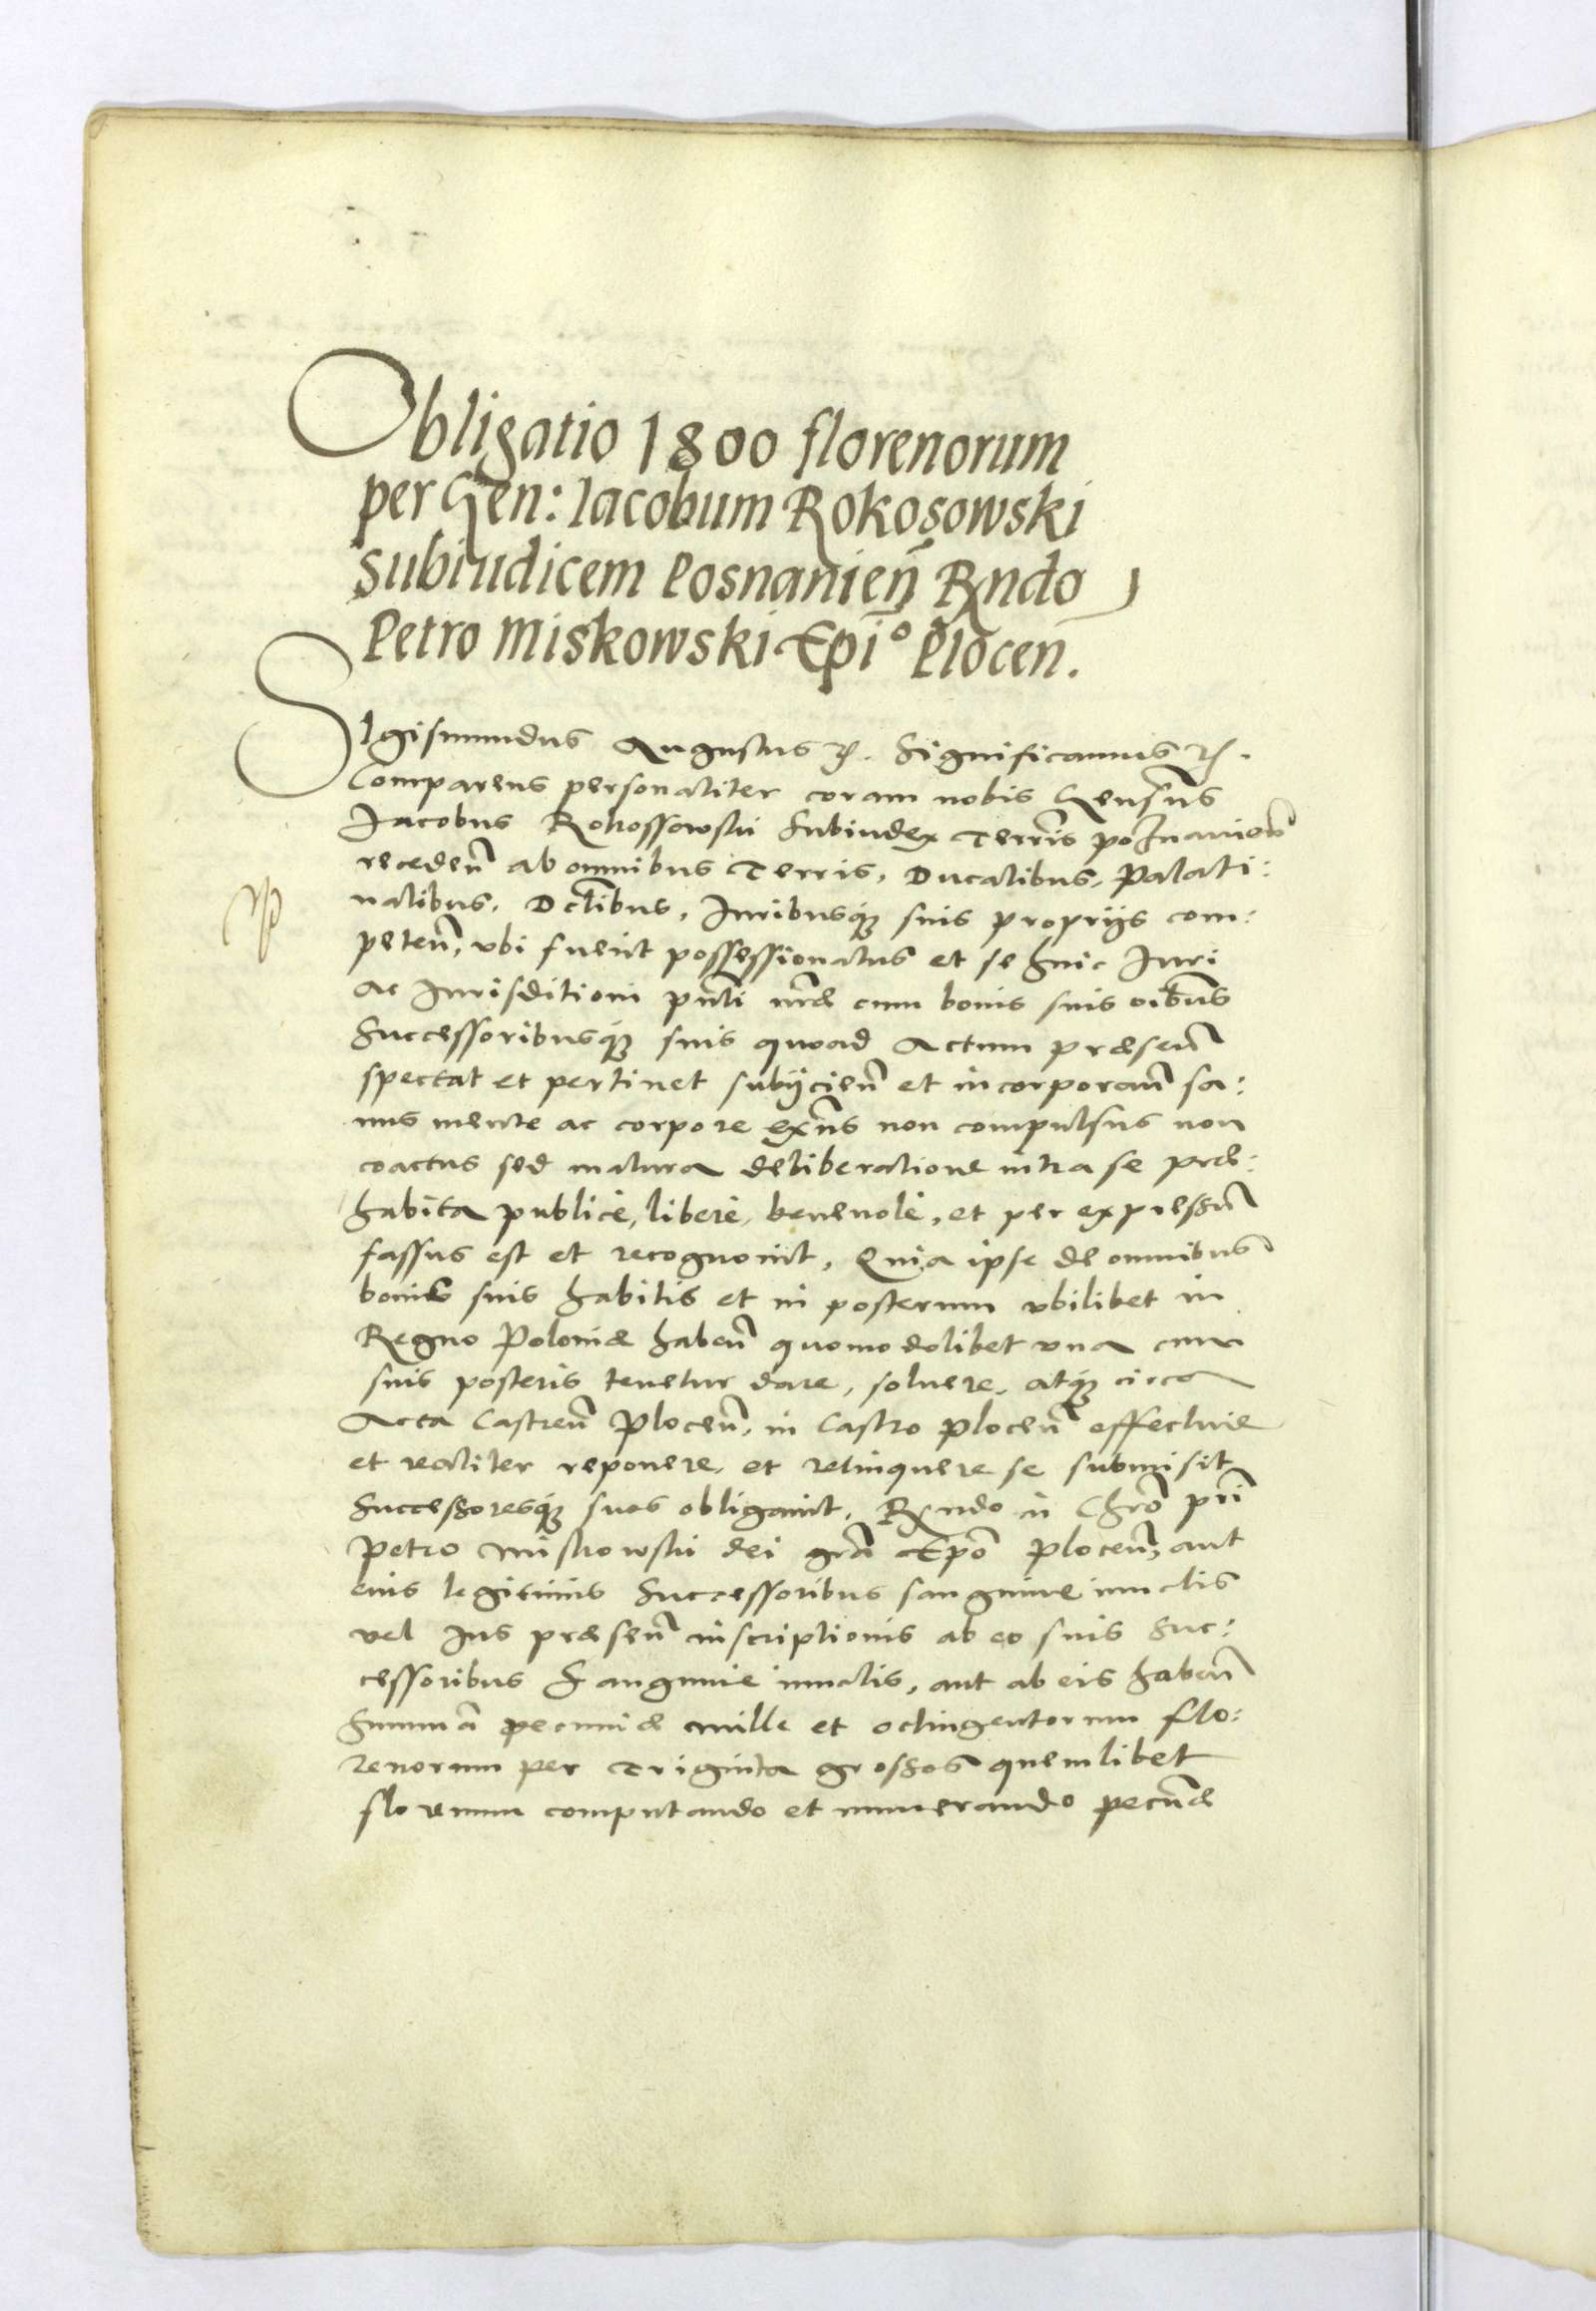 Obligatio 1800 florenorum
per Gen: Iacobum Rokosowski
subiudicem Posnanien̄ Rndo
Petro Miskowski Epi͂o Plocen.
SIgismundus Augustus rc. Significamus rc.
Comparens personaliter coram nobis Gensus
Jacobus Rokossowski Subiudex Terrīs poznanien̄
receden̄ ab omnibus Terris, Ducalibus, Palati:
nalibus, Dctībus, Juribusq́ꝫ suis proprijs com:
peten̄, vbi fuerit possessionatus et se huic Juri
ac Jurisditioni pn̄ti nr̄æ cum bonis suis oībus
Successoribusq́ꝫ suis quoad Actum præsen̄
spectat et pertinet subijcien̄ et incorporan̄ sa:
nus mente ac corpore exn̄s non compulsus non
coactus sed matura deliberatione intra se præ:
habita publicè, liberè, beneuolè, et per expressū
fassus est et recognouit, Quia ipse de omnibus
bonis suis habitis et in posterum vbilibet in
Regno Poloniæ haben̄ quomodolibet vna cum
suis posteris tenetur dare, soluere, atq́ꝫ circa
Acta Castren̄ Plocen̄, in Castro plocen̄ effectiue
et realiter reponere, et relinquere se submisit
Successoresq́ꝫ suos obligauit, Rndo in Chrō pr̄i
Petro Miskowski dei grā Epō Plocen̄, aut
eius legitimis Successoribus sanguine iunctis
vel Jus præsen̄ inscriptionis ab eo suis Suc:
cessoribus Sanguine iunctis, aut ab eis haben̄
Summā pecuniæ mille et octingentorum flo:
renorum per Triginta grossos quemlibet
florenum computando et numerando pecun̄æ